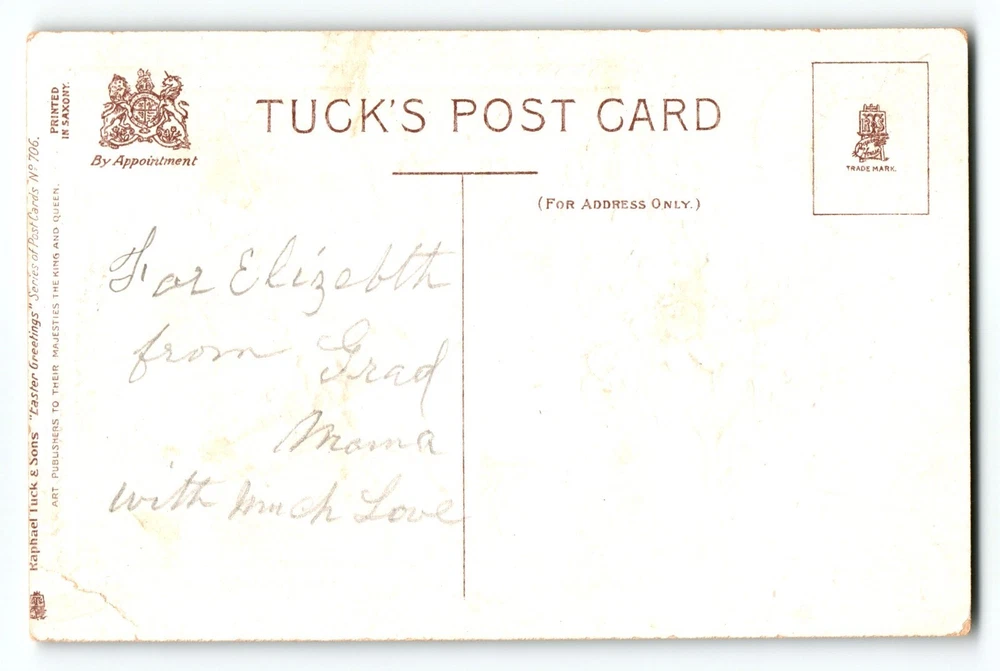 TUCK'S POST CARD
By Appointment
PRINTED
IN SAXONY.
(FOR ADDRESS ONLY.)
TRADE MARK.
Raphael Tuck & Sons' "Easter Greetings" Series of Post Cards Nº 706.
ART PUBLISHERS TO THEIR MAJESTIES THE KING AND QUEEN.
For Elizebth
from Grad
Mama
with much Love